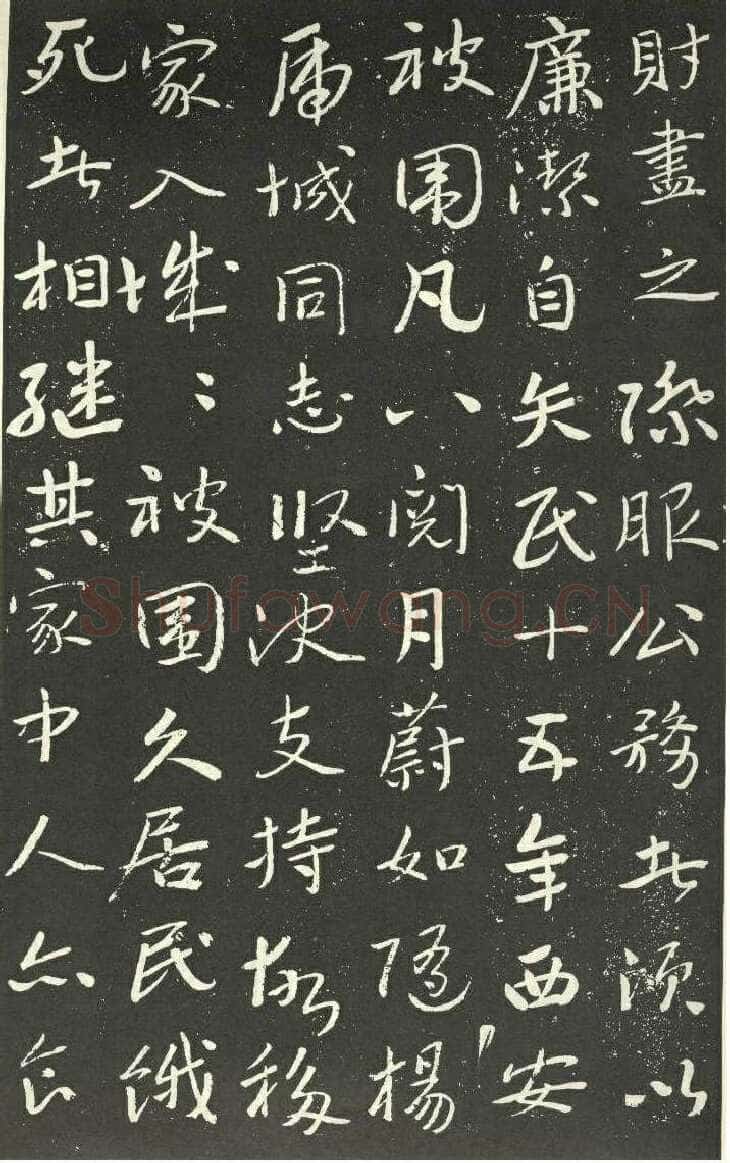 財盡之際服公務者須以
廉潔自矢民十五年西安
被围凡八閱月蔚如隨楊
虎城同志坚决支持故移
家入城〻被圍久居民餓
死者相継其家中人亦食
Shufawang.CN